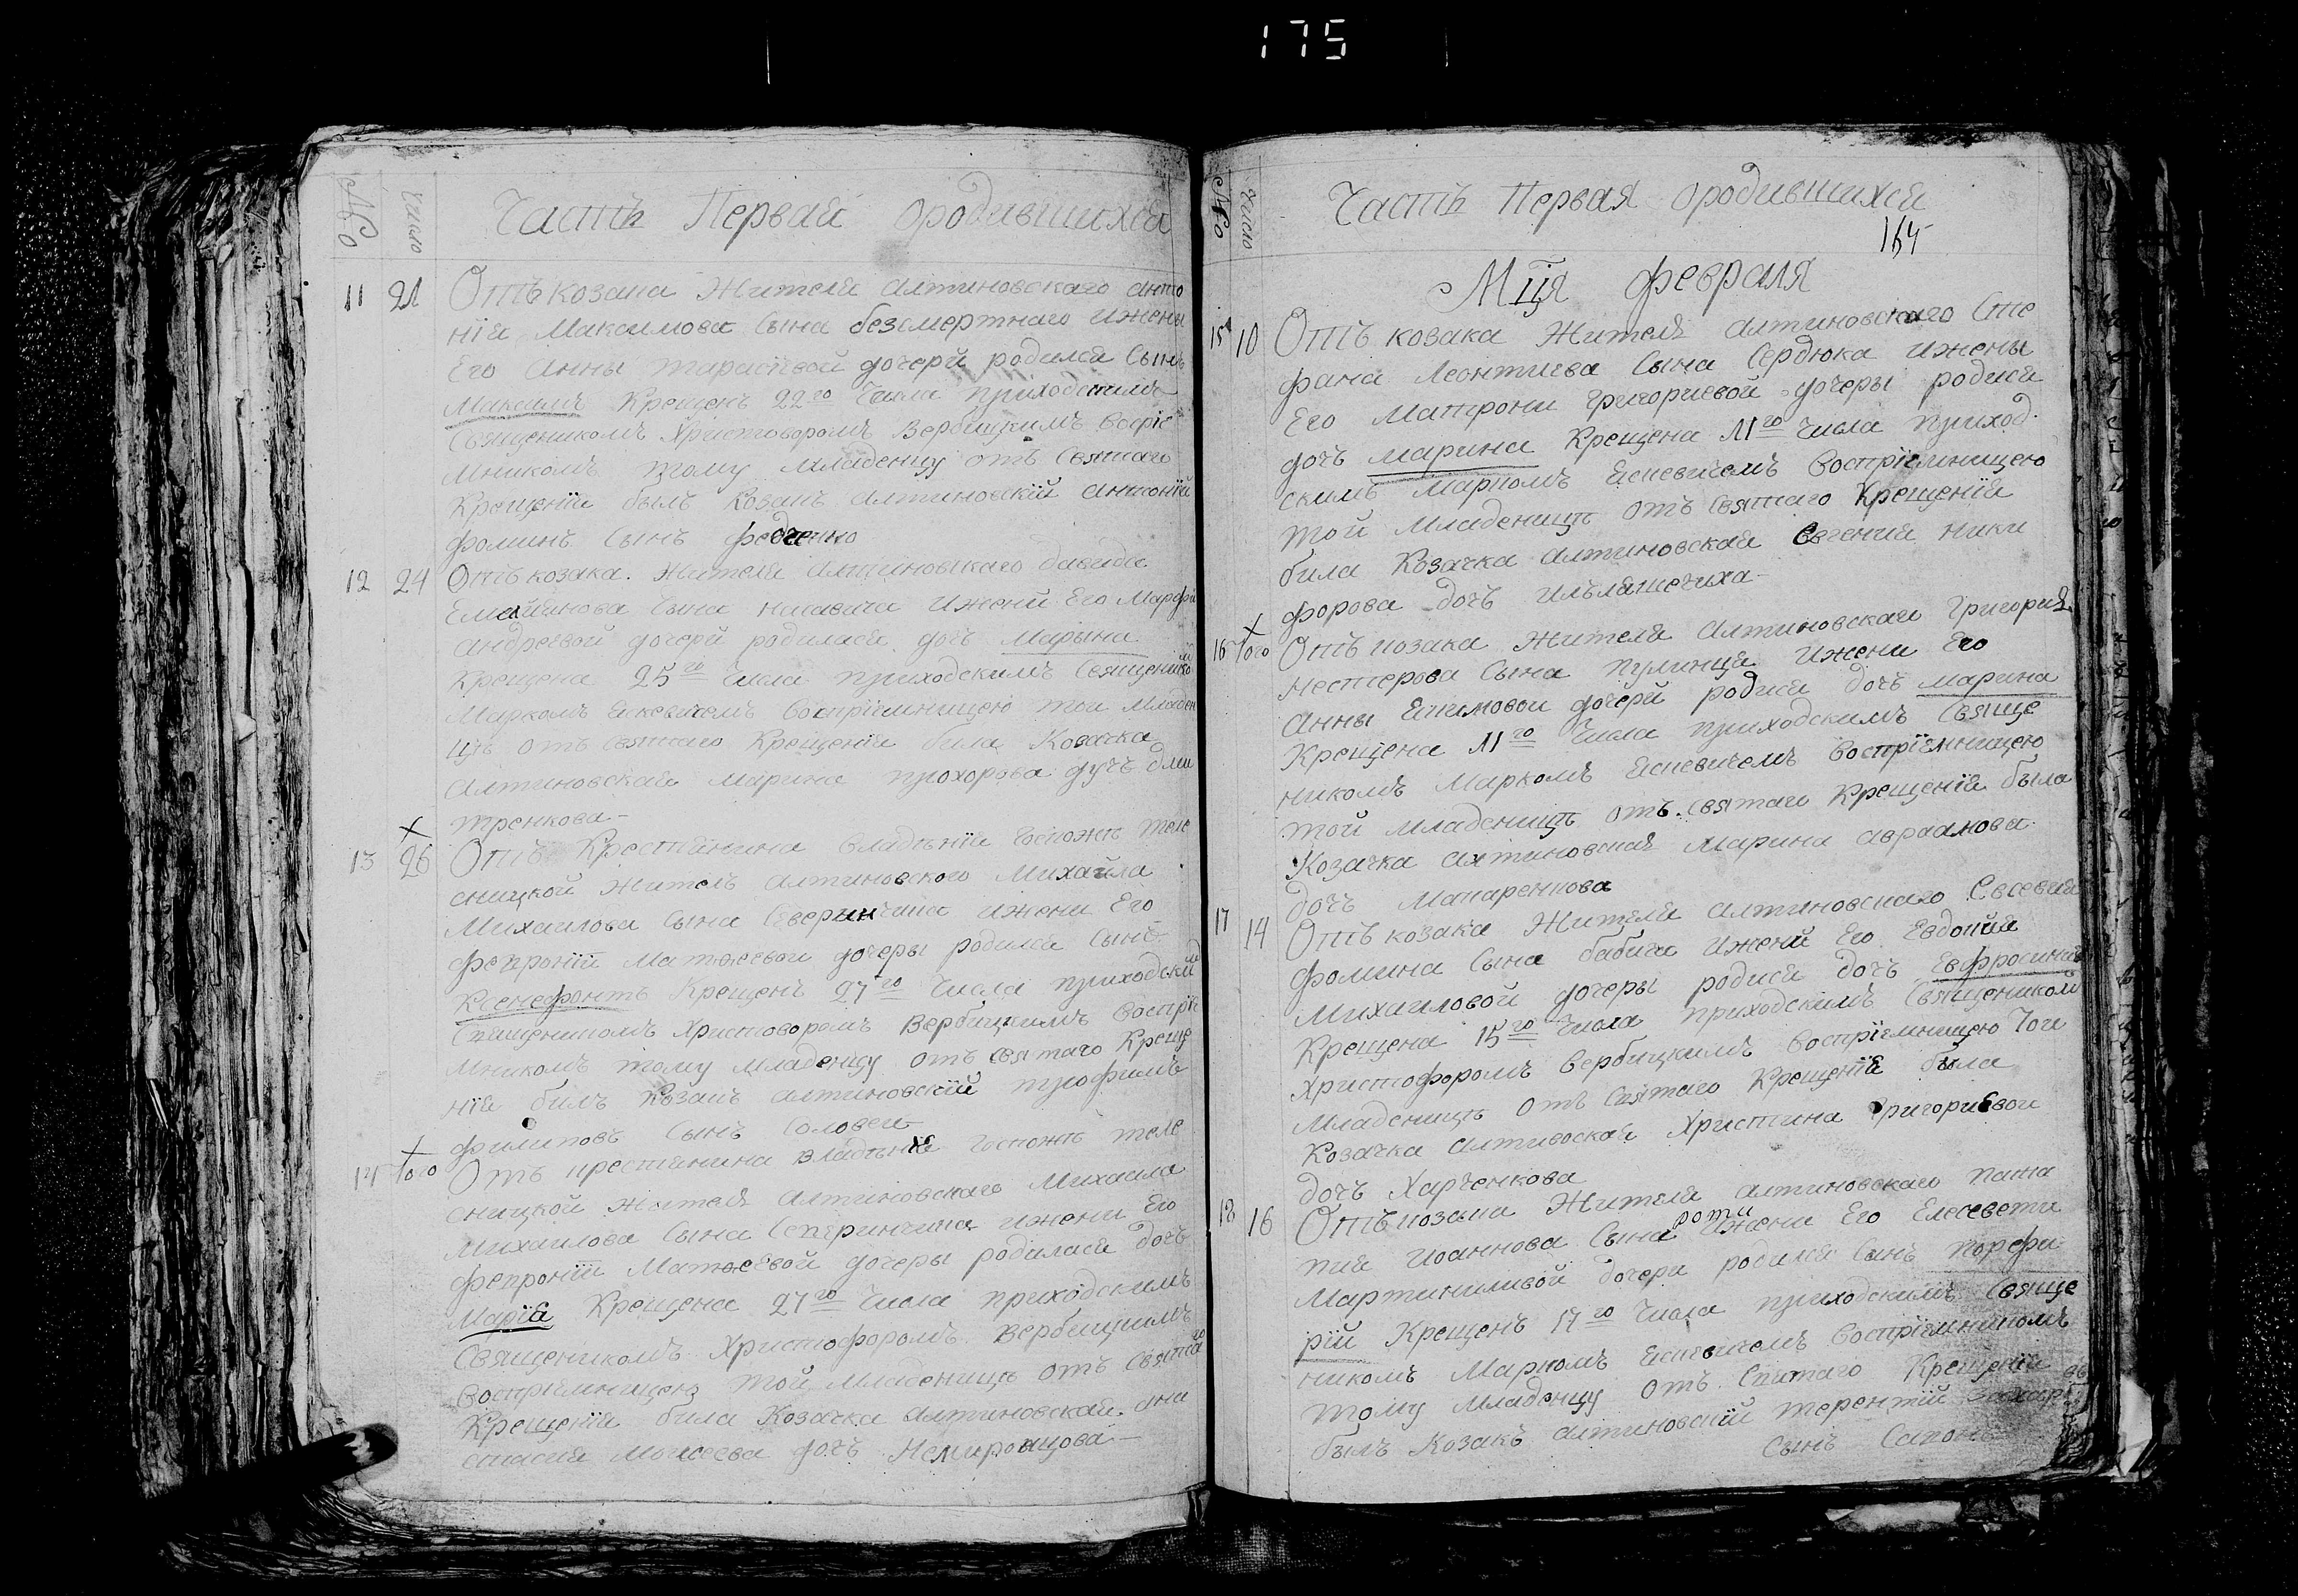 175
№ Число Часть Первая ородившихся
11 21 Отъ козака Жителя алтиновскаго анто
нія Максимова Сына безсмертнаго ижены
Его Анны тарасіевой дочери родился Сынъ
Максимъ Крещенъ 22го Числа приходскимъ
Священикомъ Христофоромъ Вербицкимъ Воспріе
мникомъ тому младенцу отъ Святаго
Крещенія былъ Козакъ алтиновскій антоній
фоминъ Сынъ федченко
12 24 Отъ козака Жителя алтиновскаго давида
Сына ижени Его Марфи
андреевой дочери родилася дочь Марына
Крещена 25го Числа приходскимъ Священико
Маркомъ Ескевичемъ Воспріемницею той младен
цѣ отъ Святаго Крещенія била Козачка
алтиновская марина прохорова дочь дми
тренкова
13 26 Отъ Крестянина владѣнія госпожи теле
сницкой Жителя алтиновского Михайла
Михаилова Сына Северинчика ижени Его
фепроніи Матвеевои дочеры родился Сынъ
Ксенефонтъ Крещенъ 27го Числа приходски
Священикомъ Христофоромъ Вербицкимъ Воспріе
мникомъ тому младенцу отъ Святаго Креще
нія билъ Козакъ алтиновскій трофимъ
филиповъ Сынъ Соловей
14 того Отъ крестянина владѣнія госпожи теле
сницкой жителя алтиновскаго Михаила
Михаилова Сына Северинчика ижени Его
фепроніи Матвеевой дочеры родилася дочь
Марія Крещена 27го Числа приходскимъ
Священикомъ Христофоромъ Вербицкимъ
Воспріемницею той младеницѣ отъ Святаго
Крещенія била Козачка алтиновская ана
стасия Моисеева дочъ Немиронцова
№ Число Часть Первая ородившихся
164
Мца февраля
15 10 Отъ козака Жителя алтиновскаго Сте
фана Леонтиева Сына Сердюка ижены
Его Матрони григориевой дочеры родися
дочъ марина Крещена 11го Числа приход
скимъ Маркомъ Ескевичемъ Воспріемницею
той младеницѣ отъ Святаго Крещенія
била Козачка алтиновская Евгения ники
форова дочъ ильяшечиха
16 того Отъ козака Жителя алтиновскаго Григория
нестерова Сына пулинца ижени Его
анны Екимовой дочери родися дочъ марина
Крещена 11го Числа приходскимъ Свяще
никомъ Маркомъ Ескевичемъ Воспріемницею
той младеницѣ отъ Святаго Крещенія была
Козачка алтиновская марина авраамова
дочъ Макаренкова
17 14 Отъ козака Жителя алтиновскаго Евсевия
фомина Сына бабича ижени Его Евдокия
Михаиловой дочеры родися дочъ Евфросиния
Крещена 15го Числа приходскимъ Священикомъ
Христофоромъ Вербицкимъ Воспріемницею Той
Младеницѣ отъ Святаго Крещенія была
Козачка алтивоская Христина Григориевои
дочъ Харченкова
18 16 Отъ козака Жителя алтиновскаго
пия Иоаннова Сына роти ижени Его Елесевети
Мартиниливой дочери родился Синъ порфи
рій Крещенъ 17го Числа приходскимъ Свяще
никомъ Маркомъ Ескевичемъ Воспріемникомъ
тому младенцу отъ Святаго Крещенія
былъ Козакъ алтиновскій терентій
Сынъ